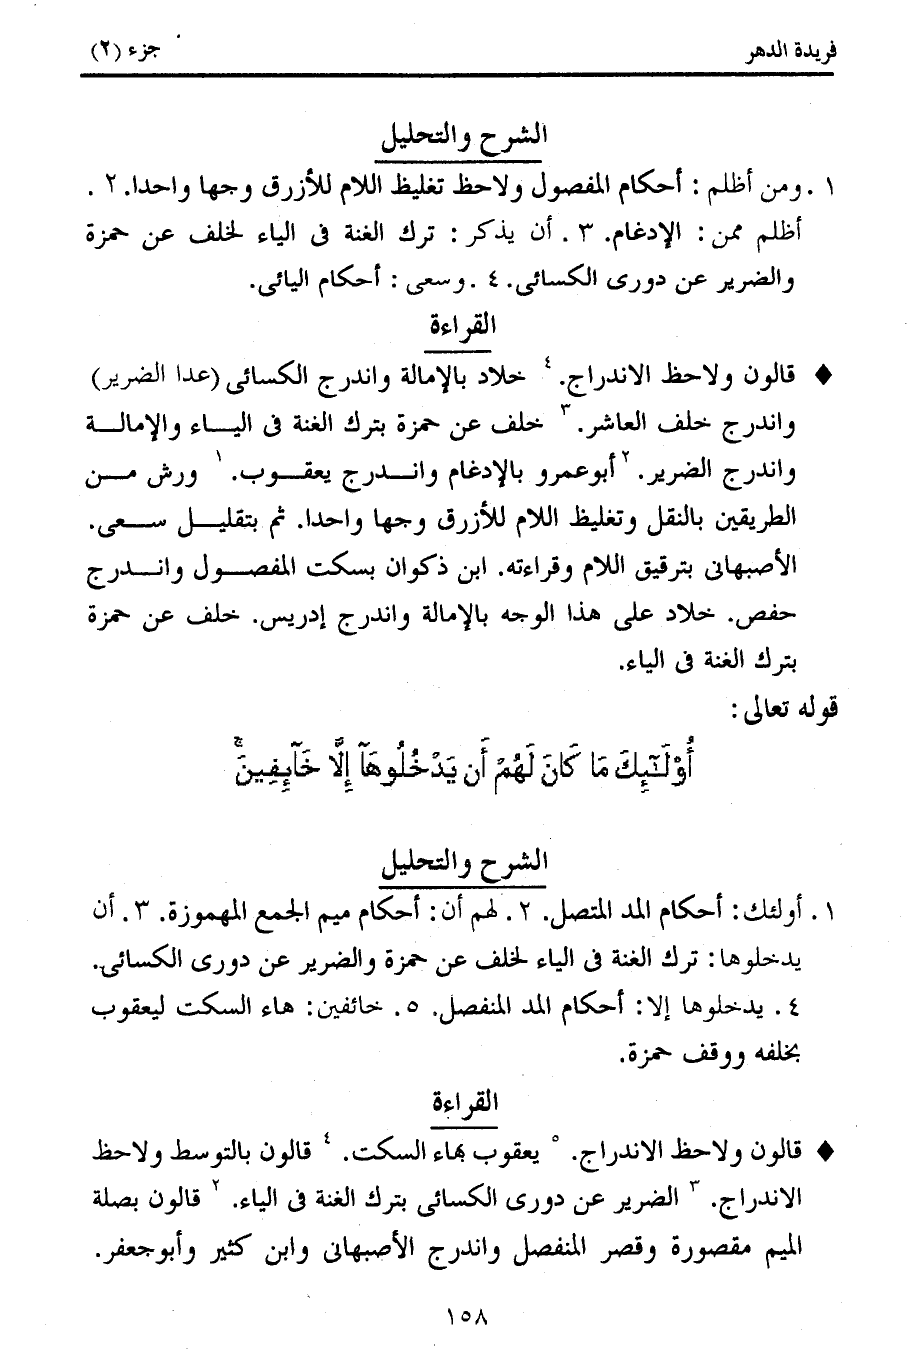 فريدة الدهر
جزء (٢)
الشرح والتحليل
١ .ومن أظلم : أحكام المفصول ولاحظ تغليظ اللام للأزرق وجها واحدا. ٢ .
أظلم ممن : الإدغام. ٣ . أن يذكر : ترك الغنة فى الياء لخلف عن حمزة
والضرير عن دورى الكسائى. ٤ .وسعى : أحكام اليائى.
القراءة
♦ قالون ولاحظ الاندراج. ٤ خلاد بالإمالة واندرج الكسائى (عدا الضرير)
واندرج خلف العاشر. ٣ خلف عن حمزة بترك الغنة فى اليـــاء والإمالـــة
واندرج الضرير. ٢ أبوعمرو بالإدغام وانـــدرج يعقـــوب. ١ ورش مـــن
الطريقين بالنقل وتغليظ اللام للأزرق وجها واحدا. ثم بتقليـــل ســـعى.
الأصبهانى بترقيق اللام وقراءته. ابن ذكوان بسكت المفصـــول وانـــدرج
حفص. خلاد على هذا الوجه بالإمالة واندرج إدريس. خلف عن حمزة
بترك الغنة فى الياء.
قوله تعالى:
أُوْلَـٰٓئِكَ مَا كَانَ لَهُمْ أَن يَدْخُلُوهَآ إِلَّا خَآئِفِينَ ۚ
الشرح والتحليل
١ . أولئك: أحكام المد المتصل. ٢ . لهم أن: أحكام ميم الجمع المهموزة. ٣. أن
يدخلوها: ترك الغنة فى الياء لخلف عن حمزة والضرير عن دورى الكسائى.
٤ . يدخلوها إلا: أحكام المد المنفصل. ٥. خائفين: هاء السكت ليعقوب
بخلفه ووقف حمزة.
القراءة
♦ قالون ولاحظ الاندراج. ٥ يعقوب بهاء السكت. ٤ قالون بالتوسط ولاحظ
الاندراج. ٣ الضرير عن دورى الكسائى بترك الغنة فى الياء. ٢ قالون بصلة
الميم مقصورة وقصر المنفصل واندرج الأصبهانى وابن كثير وأبوجعفر.
١٥٨